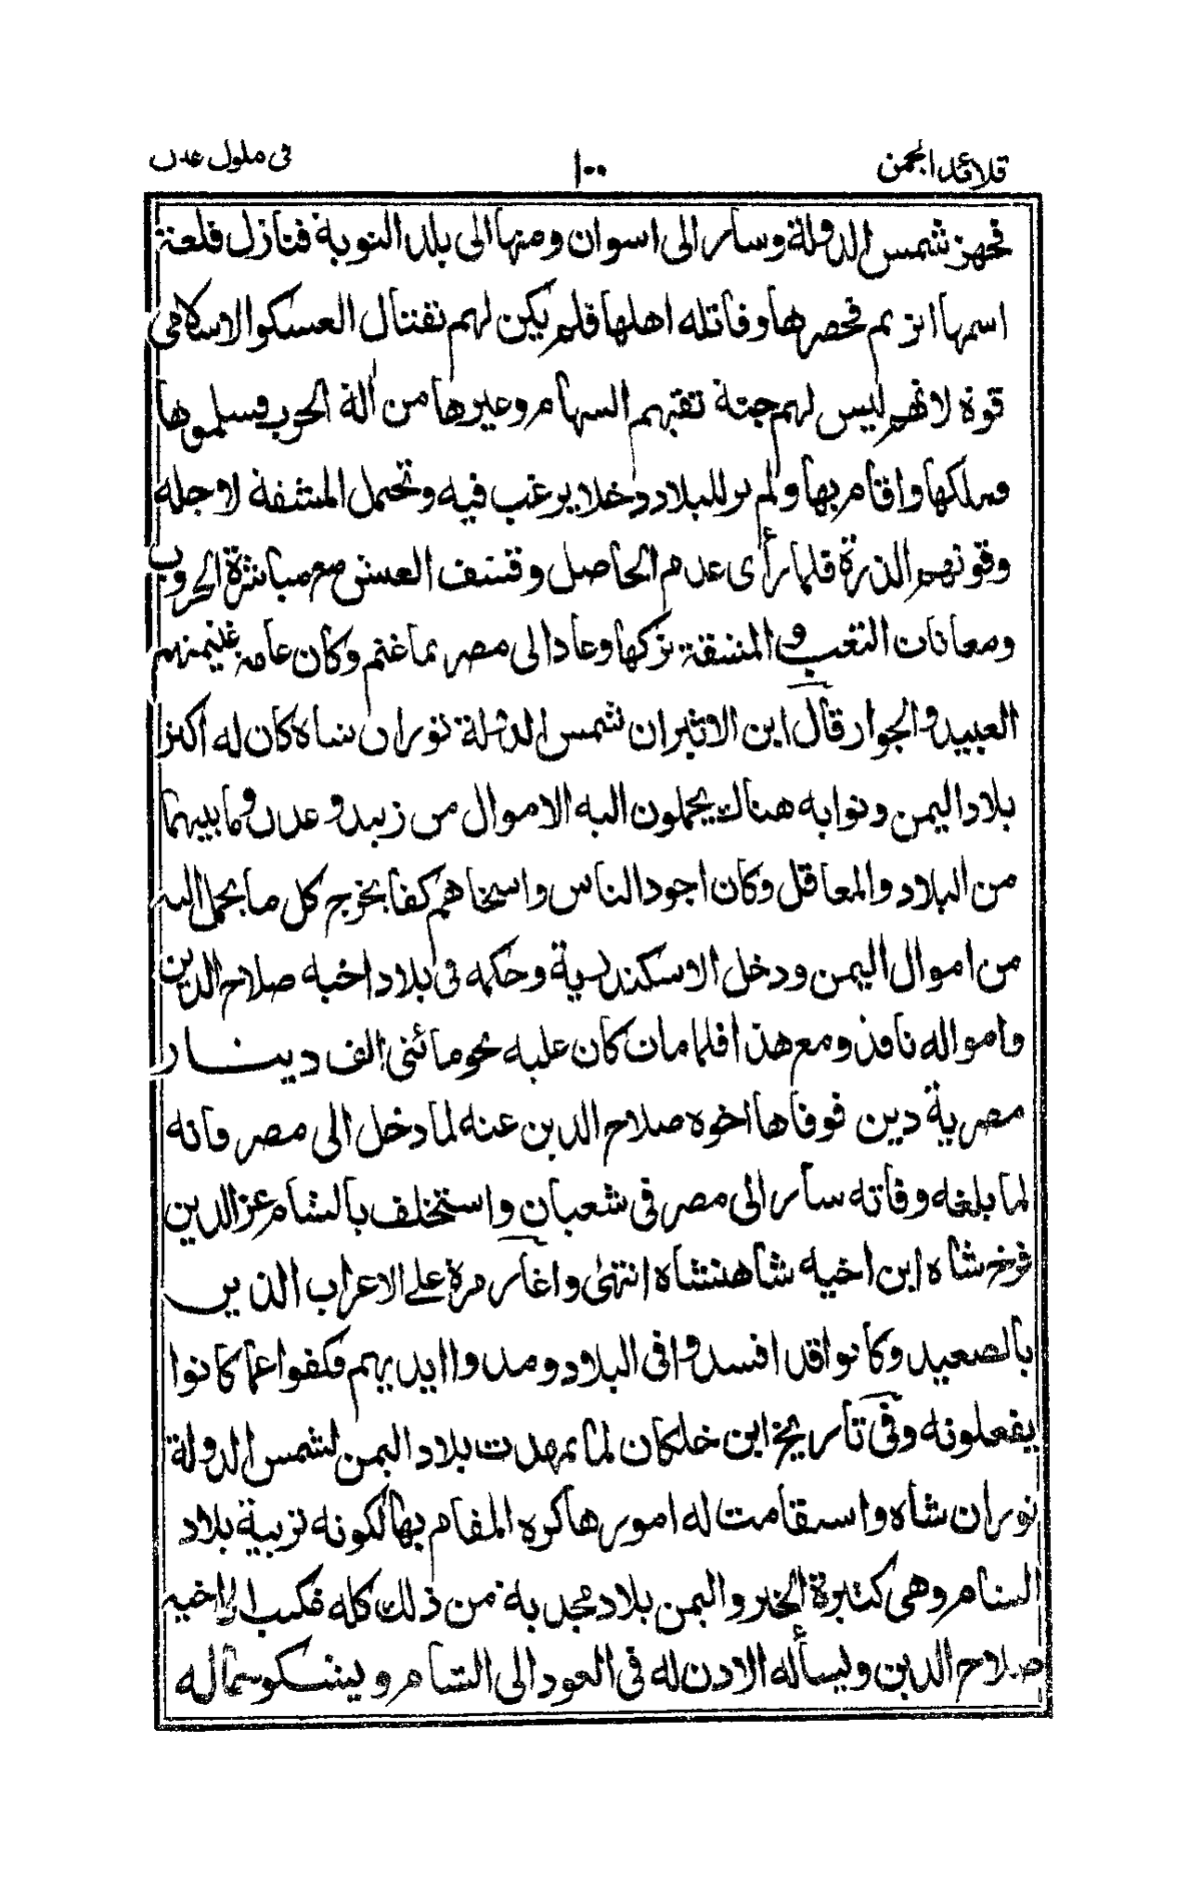 قلائد الجمن ١٠٠ فى ملوك عدن
فجهز شمس الدولة وسار الى اسوان ومنها الى بلد النوبة فنازل قلعة
اسمها ابريم فحصرها وقاتله اهلها فلم يكن لهم بقتال العسكر الاسلامى
قوة لانهم ليس لهم جنة تقيهم السهام وغيرها من آلة الحرب فسلموها
فملكها واقام بها ولم ير للبلاد دخلا يرغب فيه وتحتمل المشقة لاجله
وقوتهم الذرة فلما رأى عدم الحاصل وقشف العيش مع مباشرة الحروب
ومعانات التعب والمشقة تركها وعاد الى مصر بما غنم وكان عامة غنيمتهم
العبيد والجوار قال ابن الاثير ان شمس الدولة توران شاه كان له اكثر
بلاد اليمن ونوابه هناك يحملون اليه الاموال من زبيد وعدن وما بينهما
من البلاد والمعاقل وكان اجود الناس واسخاهم كفا يخرج كل ما يحمل اليه
من اموال اليمن ودخل الاسكندرية وحكمه فى بلاد اخيه صلاح الدين
وامواله نافذ ومع هذا فلما مات كان عليه نحو مائتى الف دينار
مصرية دين فوفاها اخوه صلاح الدين عنه لما دخل الى مصر فانه
لما بلغه وفاته سار الى مصر فى شعبان واستخلف بالشام عز الدين
فرخشاه ابن اخيه شاهنشاه انتهى واغار مرة على الاعراب الذين
بالصعيد وكانوا قد افسدوا فى البلاد ومدوا ايديهم فكفوا عما كانوا
يفعلونه وفى تاريخ ابن خلكان لما تمهدت بلاد اليمن لشمس الدولة
توران شاه واستقامت له امورها كره المقام بها لكونه تربية بلاد
الشام وهى كثيرة الخير واليمن بلاد مجدبة من ذلك كله فكتب الى اخيه
صلاح الدين وليسأله الاذن له فى العود الى الشام ويشكو حاله